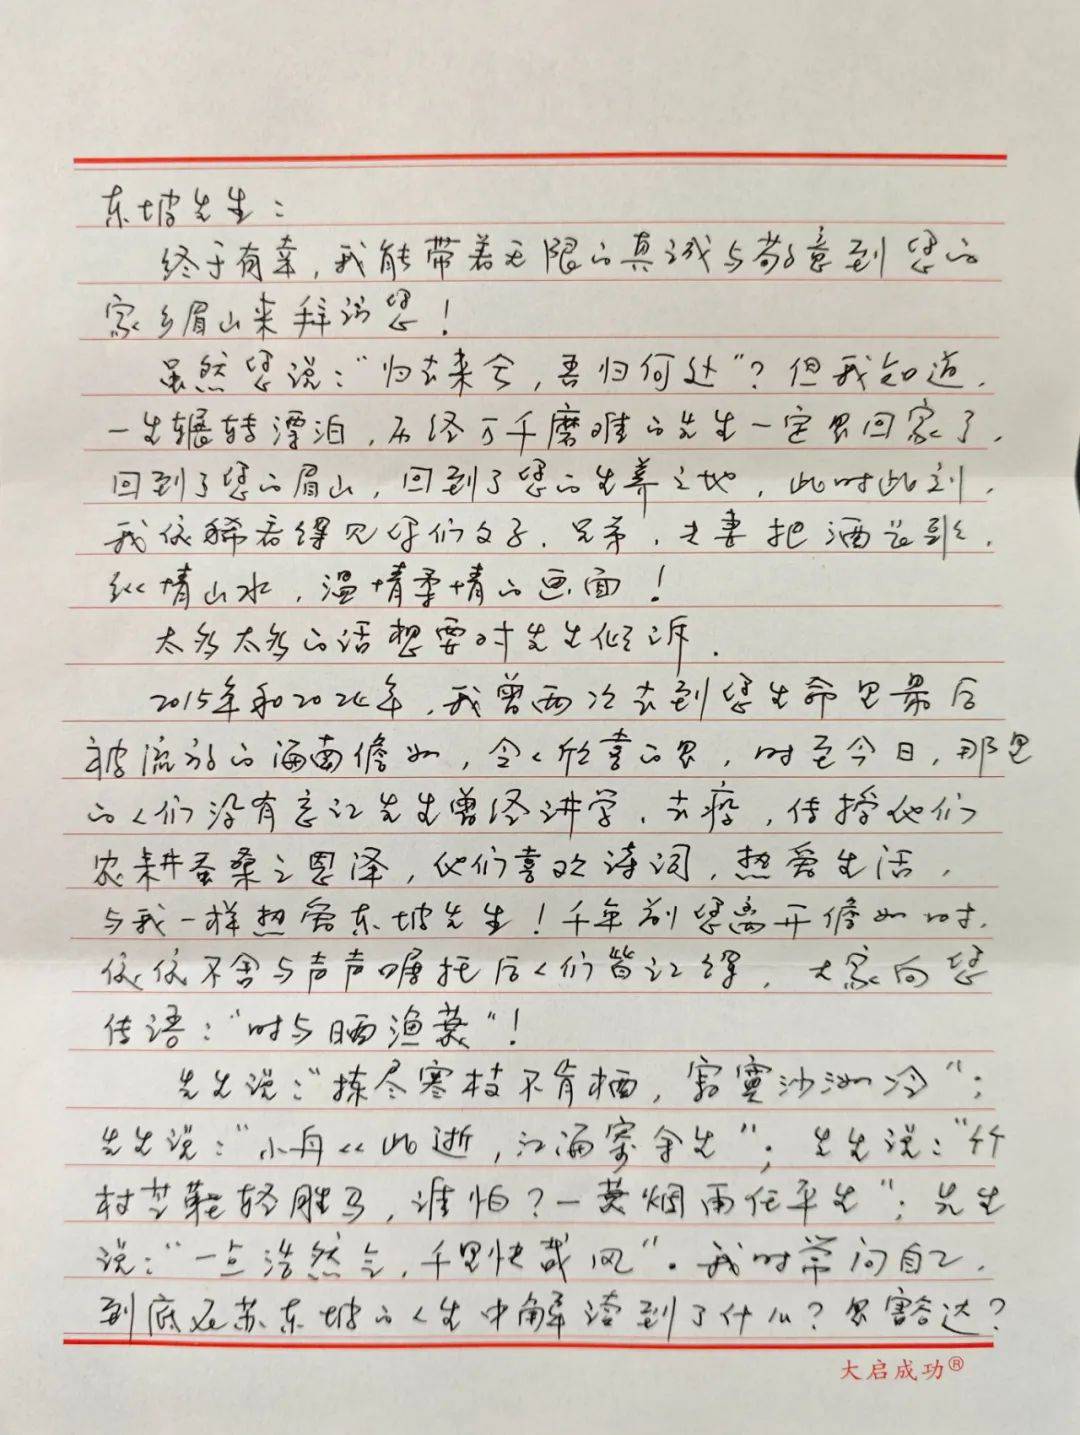 东坡先生：
终于有幸，我能带着无限的真诚与敬意到您的
家乡眉山来拜访您！
虽然您说：“归去来兮，吾归何处”？但我知道，
一生辗转漂泊，历经万千磨难的先生一定是回家了，
回到了您的眉山，回到了您的生养之地，此时此刻，
我依稀看得见你们父子、兄弟、夫妻把酒当歌，
纵情山水，温情柔情的画面！
太多太多的话想要对先生倾诉。
2015年和2024年，我曾两次去到您生命里最后
被流放的海南儋州，令人欣喜的是，时至今日，那里
的人们没有忘记先生曾经讲学、去疫，传授他们
农耕蚕桑之恩泽，他们喜欢诗词，热爱生活，
与我一样热爱东坡先生！千年前您离开儋州时，
依依不舍与声声嘱托后人们皆记得，大家向您
传语：“时与晒渔蓑”！
先生说：“拣尽寒枝不肯栖，寂寞沙洲冷”；
先生说：“小舟从此逝，江海寄余生”；先生说：“竹
杖芒鞋轻胜马，谁怕？一蓑烟雨任平生”；先生
说：“一点浩然气，千里快哉风”。我时常问自己，
到底在苏东坡的人生中解读到了什么？是豁达？
大启成功®